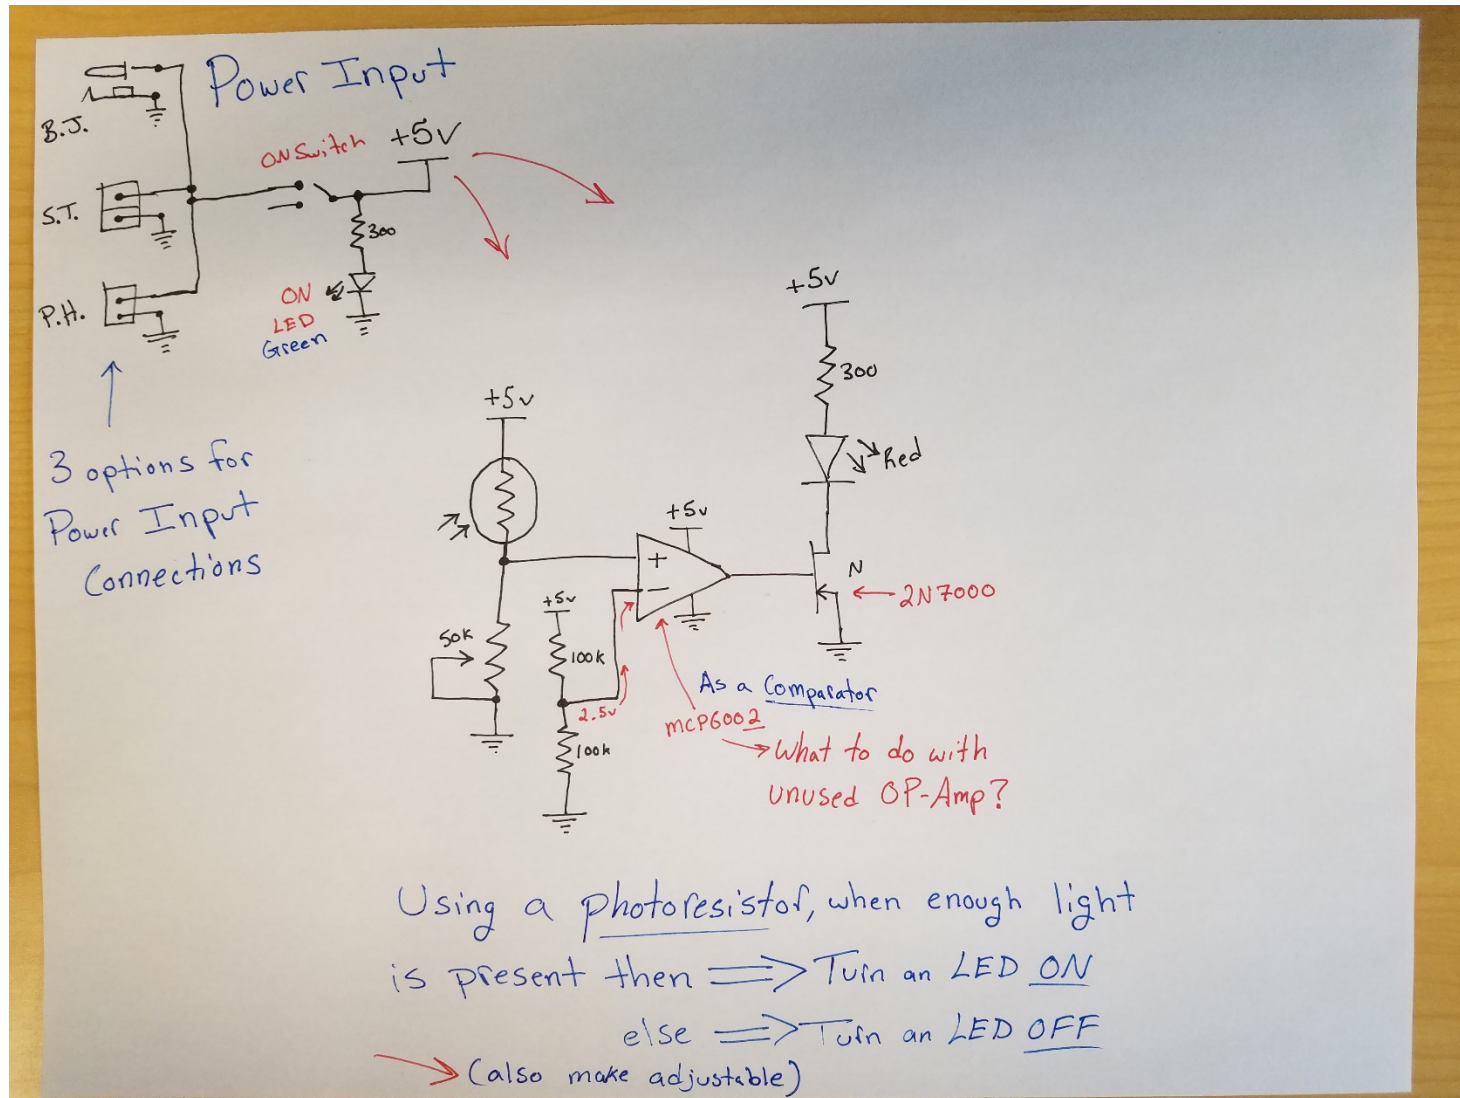 Power Input
B.J.
ON Switch
+5V
S.T.
300
P.H.
ON
LED
Green
3 options for
Power Input
Connections
+5v
300
Red
+5v
+5v
+
-
N
2N7000
+5v
50k
100k
2.5v
100k
As a Comparator
MCP6002
What to do with
unused OP-Amp?
Using a photoresistor, when enough light
is present then => Turn an LED ON
else => Turn an LED OFF
(also make adjustable)